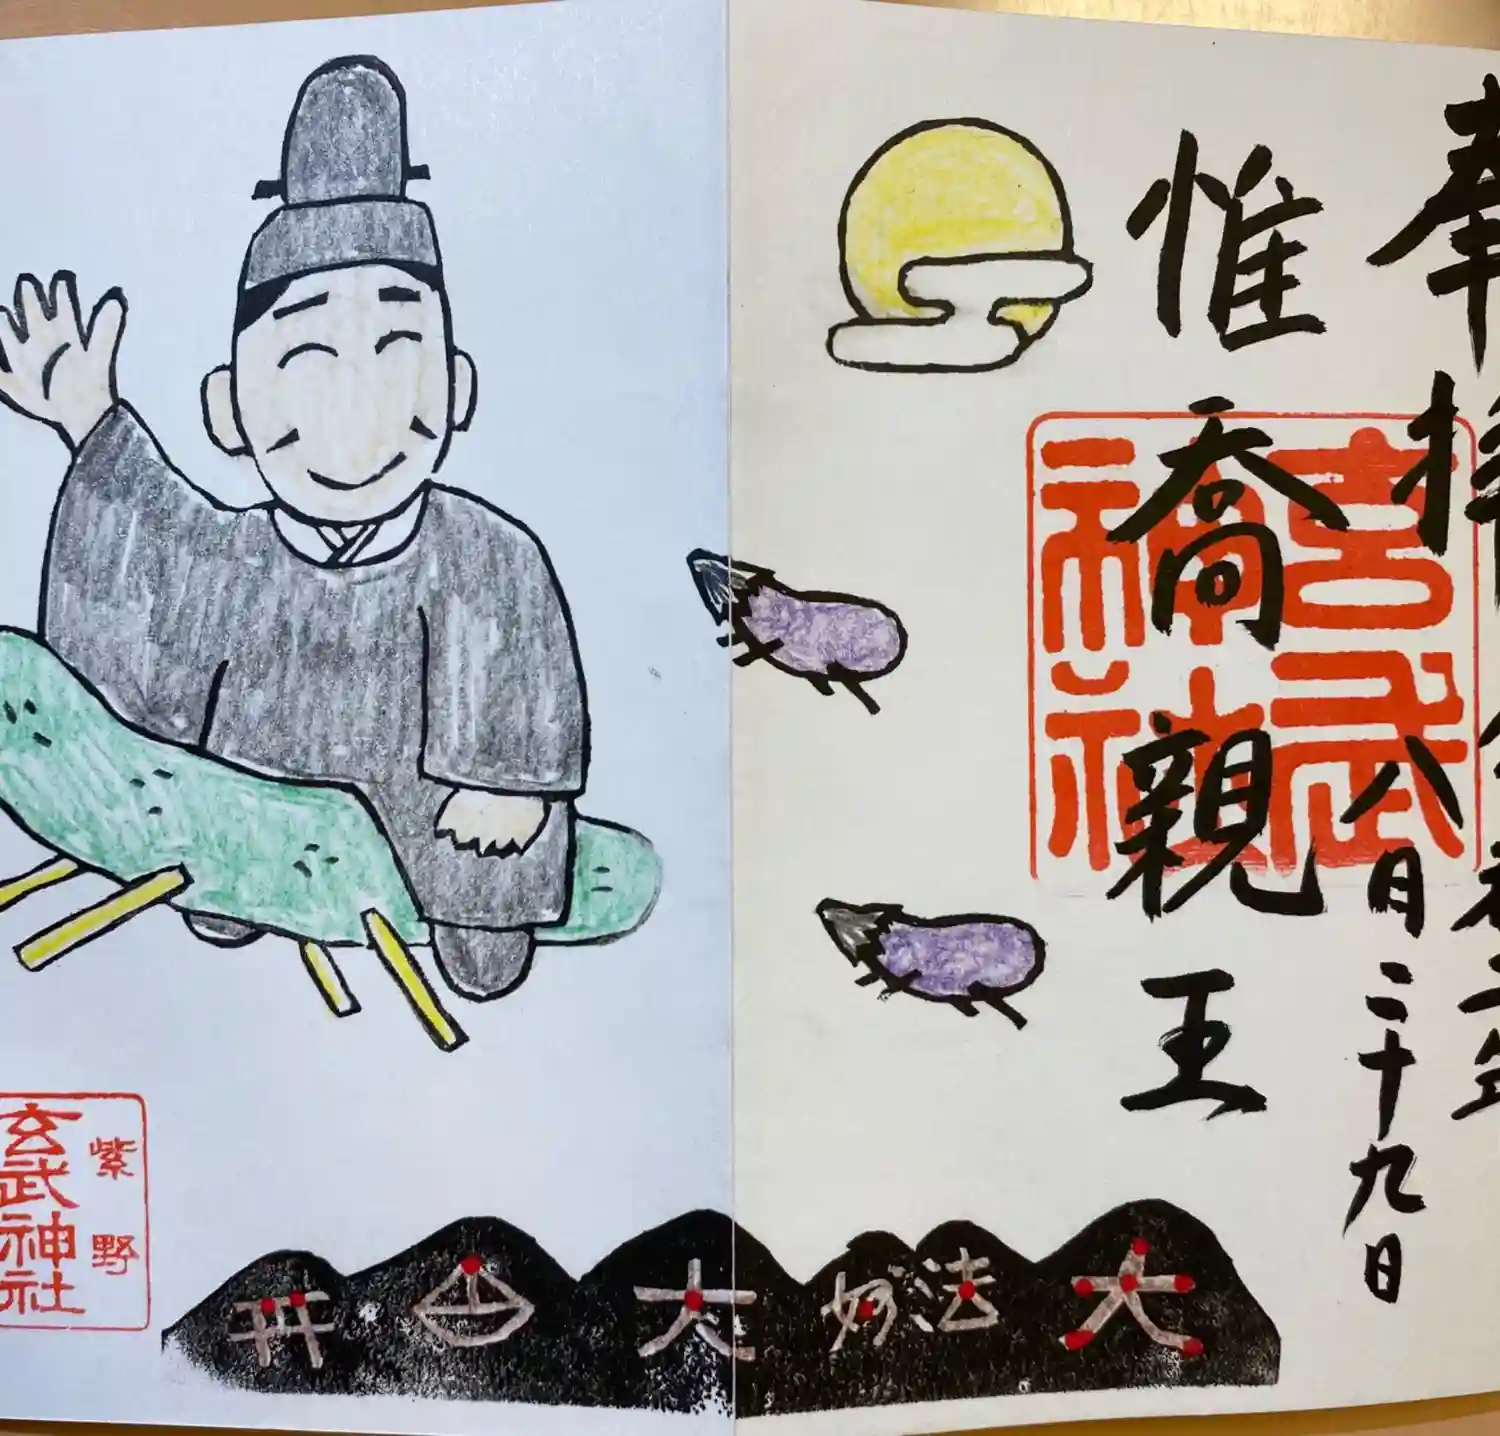 奉拝
令和二年
八月二十九日
惟喬親王
玄武神社
紫野
玄武神社
开
大
妙法
大